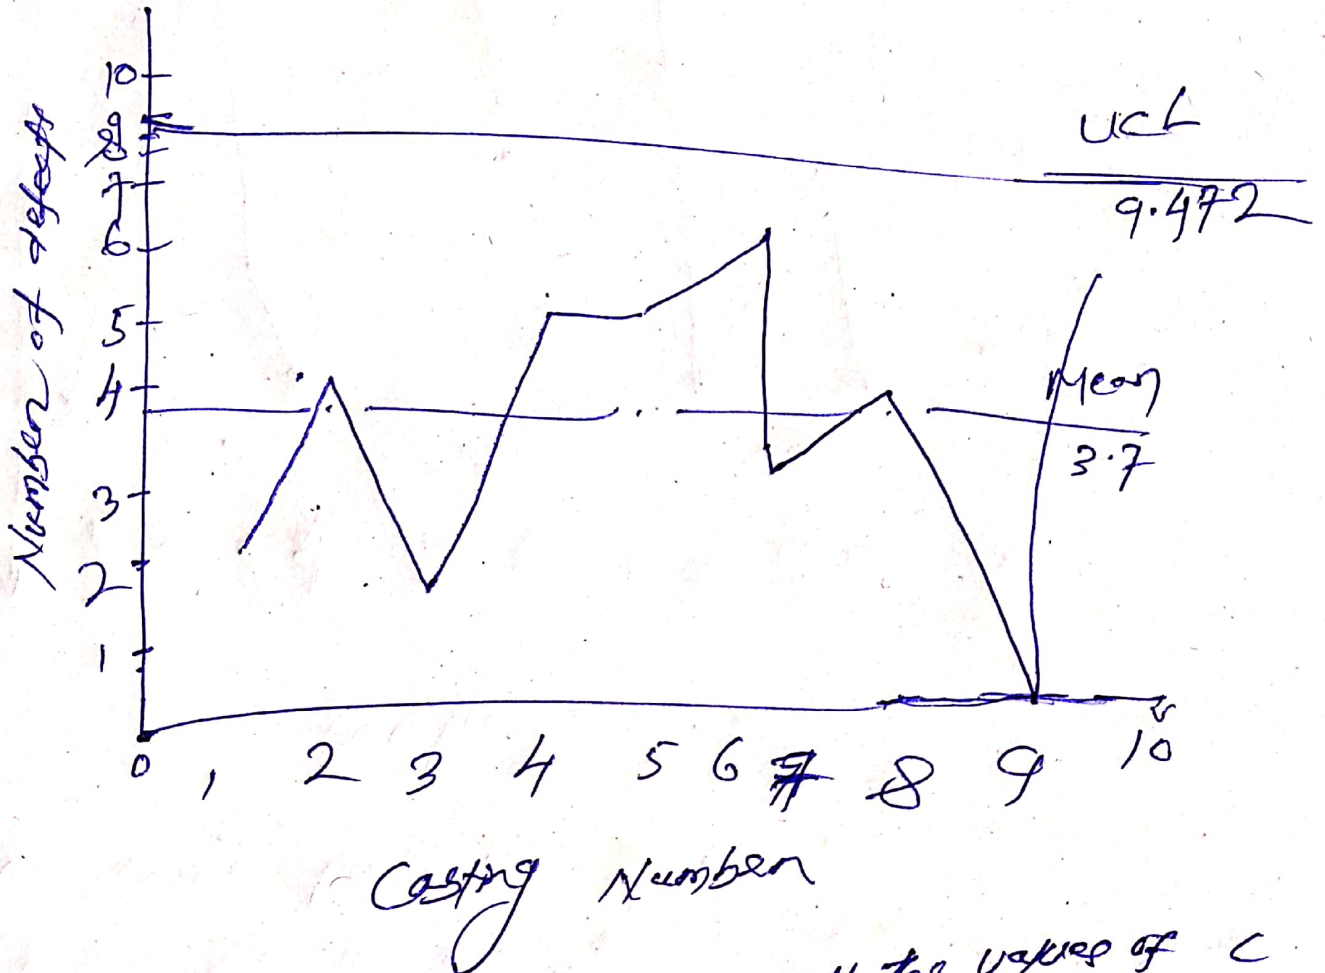 Number of defects
10
9
8
7
6
5
4
3
2
1
UCL
9.472
Mean
3.7
0 1 2 3 4 5 6 7 8 9 10
Casting Number
values of C